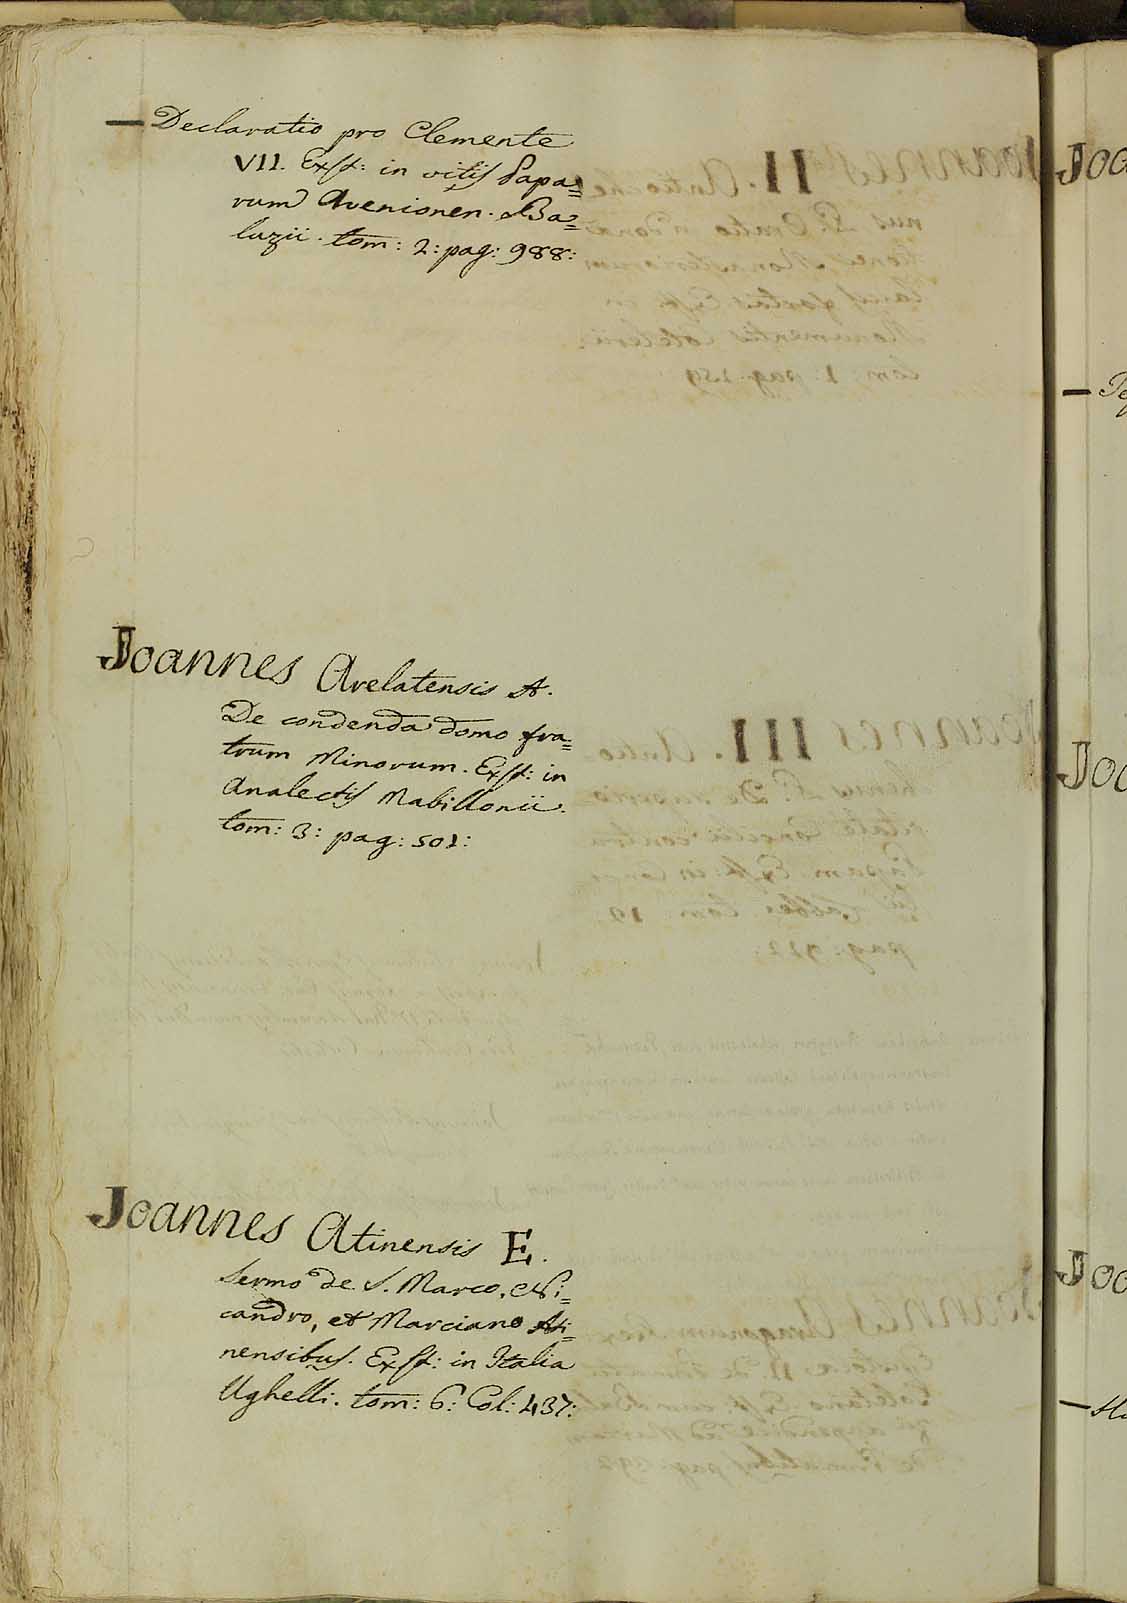 — Declaratio pro Clemente
VII. Exst: in vitis Papa=
rum Avenionen. Ba=
luzii. tom: 2: pag: 988:
Joannes Arelatensis A.
De condenda domo fra=
trum Minorum. Exst: in
Analectis Mabillonii.
tom: 3: pag: 501:
Joannes Atinensis E.
Sermo de S. Marco, Ni=
candro, et Marciano Ati=
nensibus. Exst: in Italia
Ughelli. tom: 6: Col: 437: